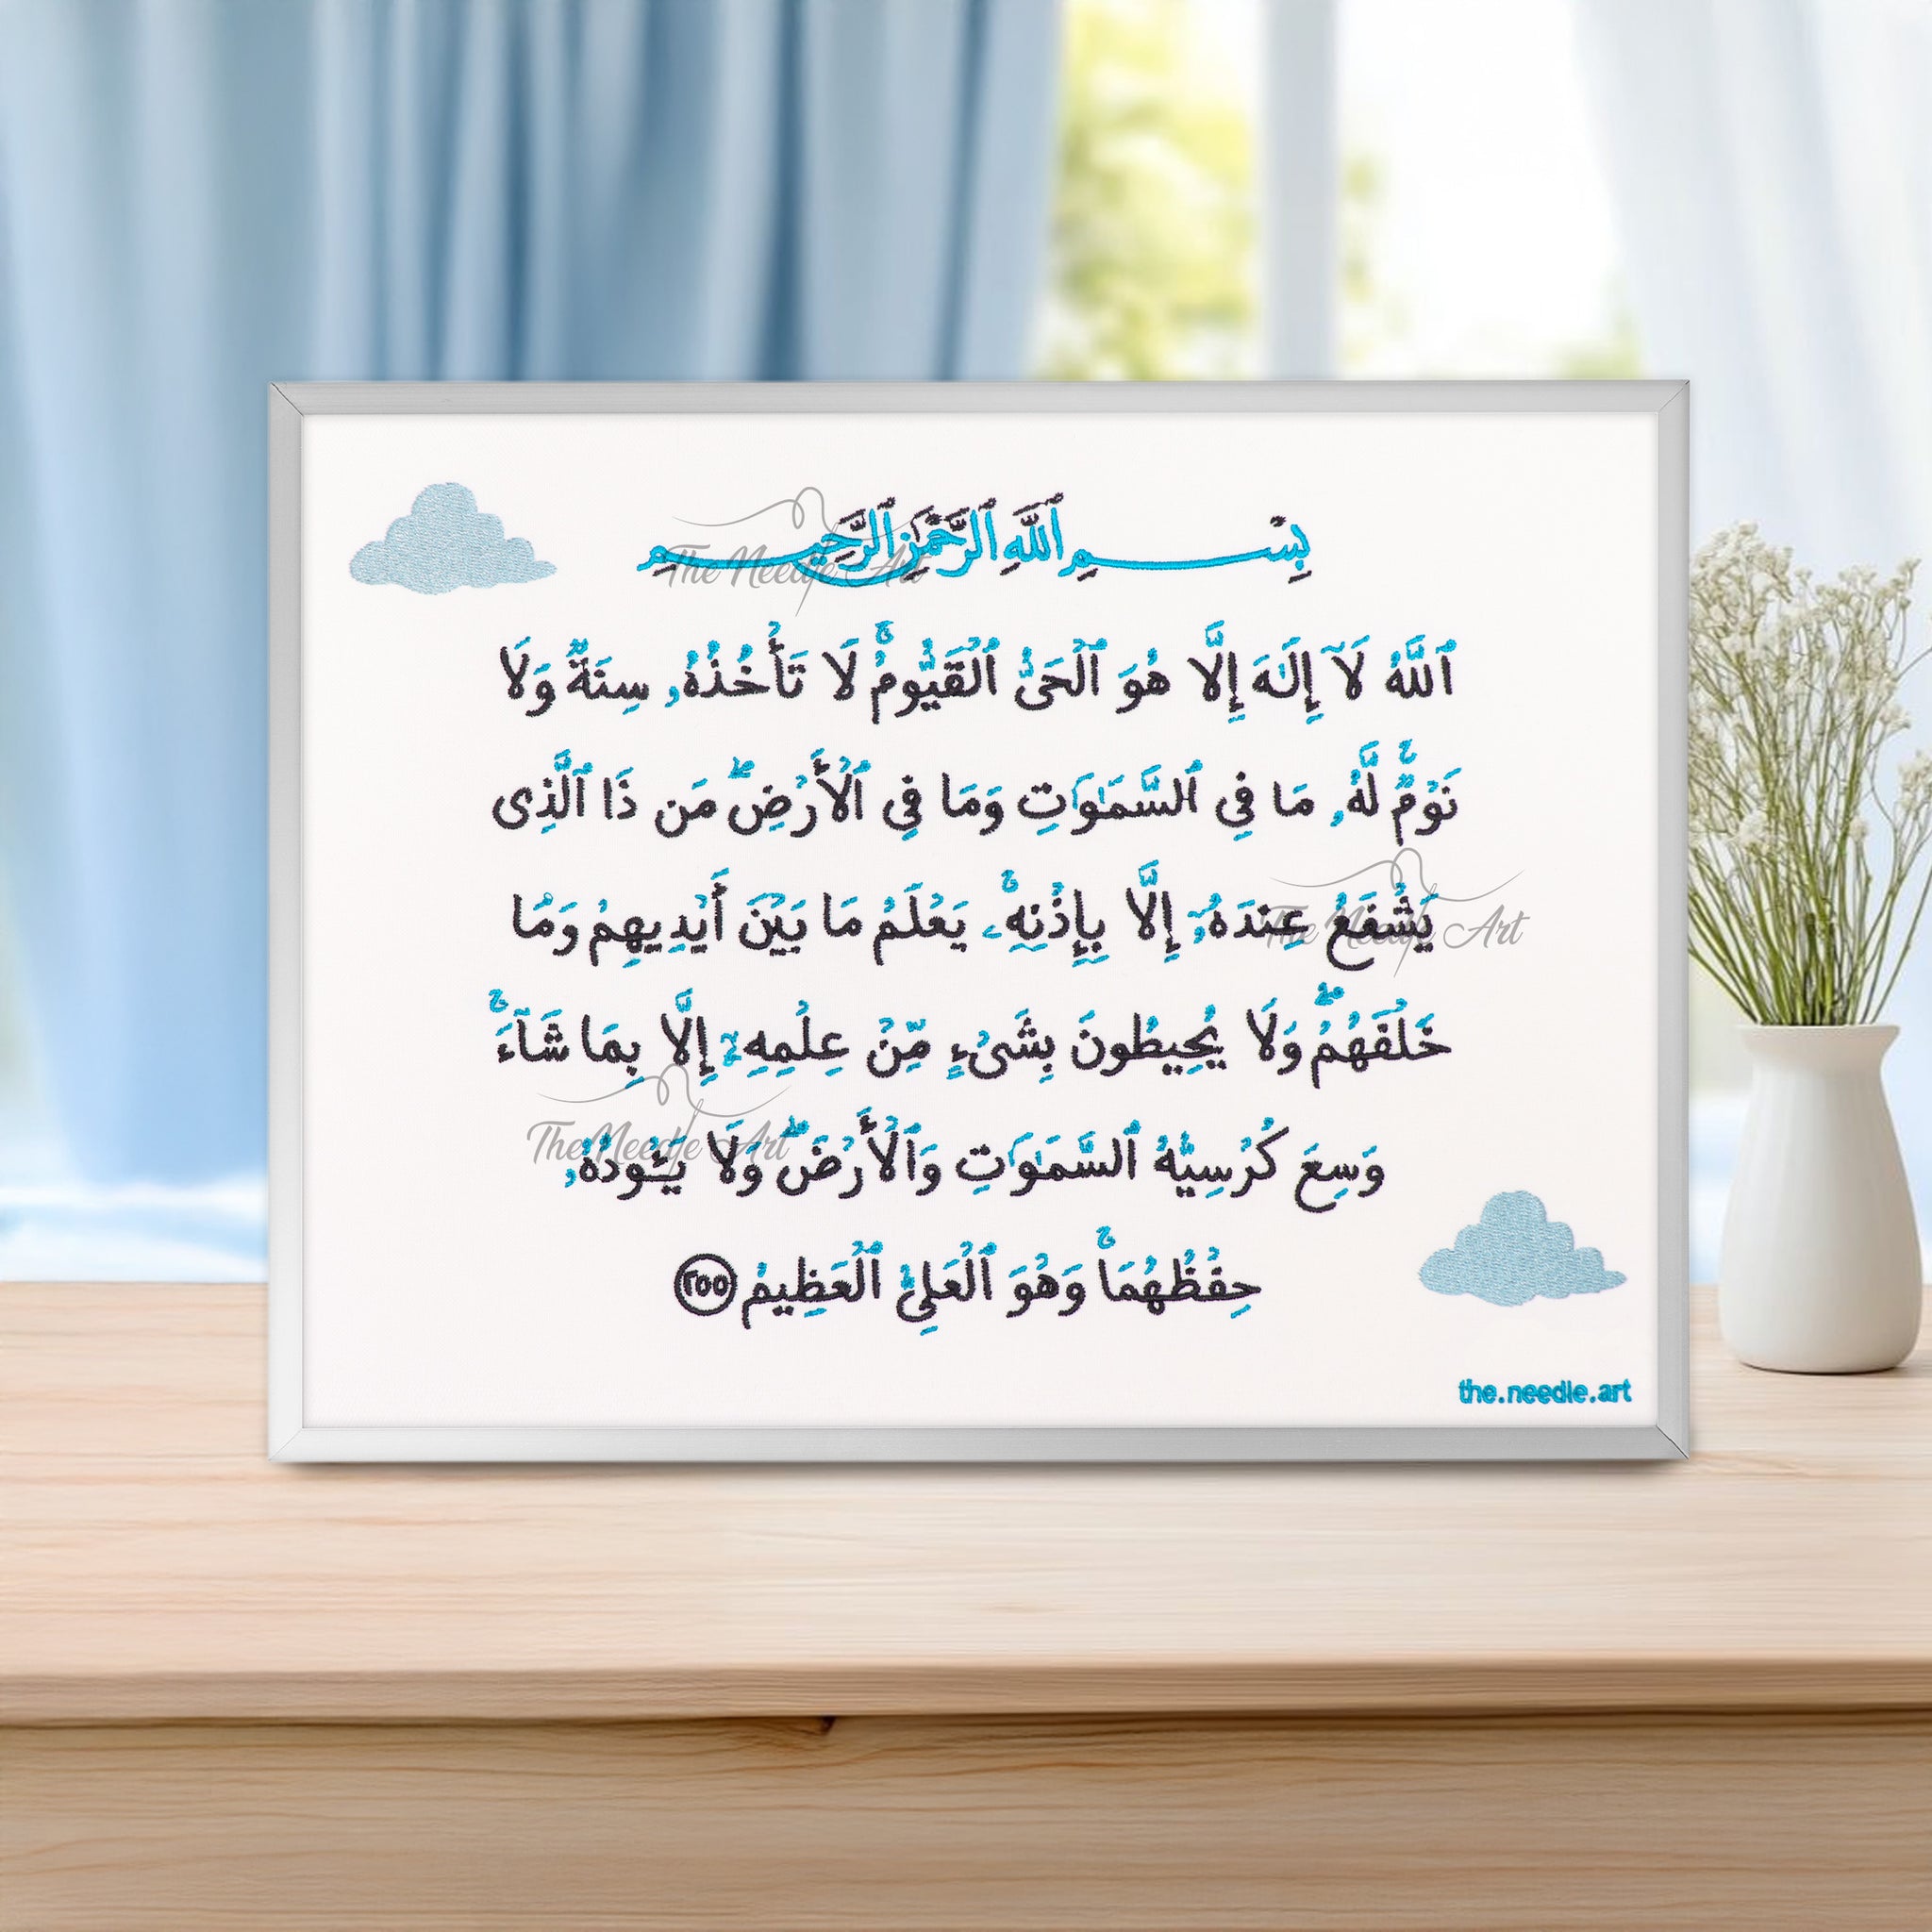 بِسْمِ ٱللَّهِ ٱلرَّحْمَٰنِ ٱلرَّحِيمِ
ٱللَّهُ لَآ إِلَٰهَ إِلَّا هُوَ ٱلْحَىُّ ٱلْقَيُّومُ ۚ لَا تَأْخُذُهُۥ سِنَةٌ وَلَا
نَوْمٌ ۚ لَّهُۥ مَا فِى ٱلسَّمَٰوَٰتِ وَمَا فِى ٱلْأَرْضِ ۗ مَن ذَا ٱلَّذِى
يَشْفَعُ عِندَهُۥٓ إِلَّا بِإِذْنِهِۦ ۚ يَعْلَمُ مَا بَيْنَ أَيْدِيهِمْ وَمَا
خَلْفَهُمْ ۖ وَلَا يُحِيطُونَ بِشَىْءٍ مِّنْ عِلْمِهِۦٓ إِلَّا بِمَا شَآءَ ۚ
وَسِعَ كُرْسِيُّهُ ٱلسَّمَٰوَٰتِ وَٱلْأَرْضَ ۖ وَلَا يَـُٔودُهُۥ
حِفْظُهُمَا ۚ وَهُوَ ٱلْعَلِىُّ ٱلْعَظِيمُ ٢٥٥
the.needle.art
The Needle Art
The Needle Art
The Needle Art